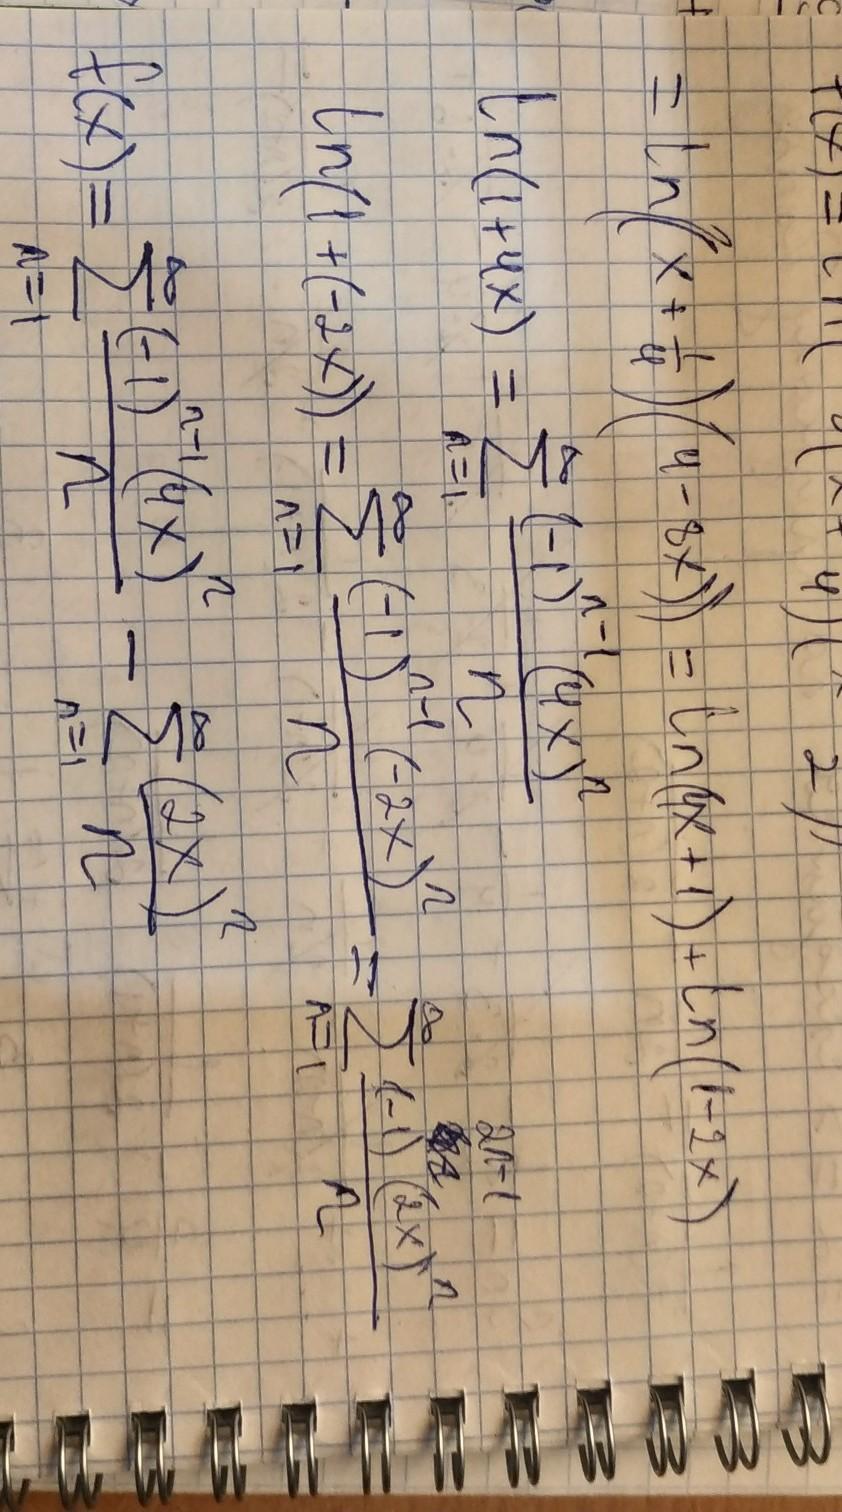 f(x) = ln(
= ln((x + 1/4)(4 - 8x)) = ln(4x + 1) + ln(1 - 2x)
ln(1 + 4x) = ∑_{n=1}^{∞} (-1)^{n-1} (4x)^n / n
ln(1 + (-2x)) = ∑_{n=1}^{∞} (-1)^{n-1} (-2x)^n / n = ∑_{n=1}^{∞} (-1)^{2n-1} (2x)^n / n
f(x) = ∑_{n=1}^{∞} (-1)^{n-1} (4x)^n / n - ∑_{n=1}^{∞} (2x)^n / n